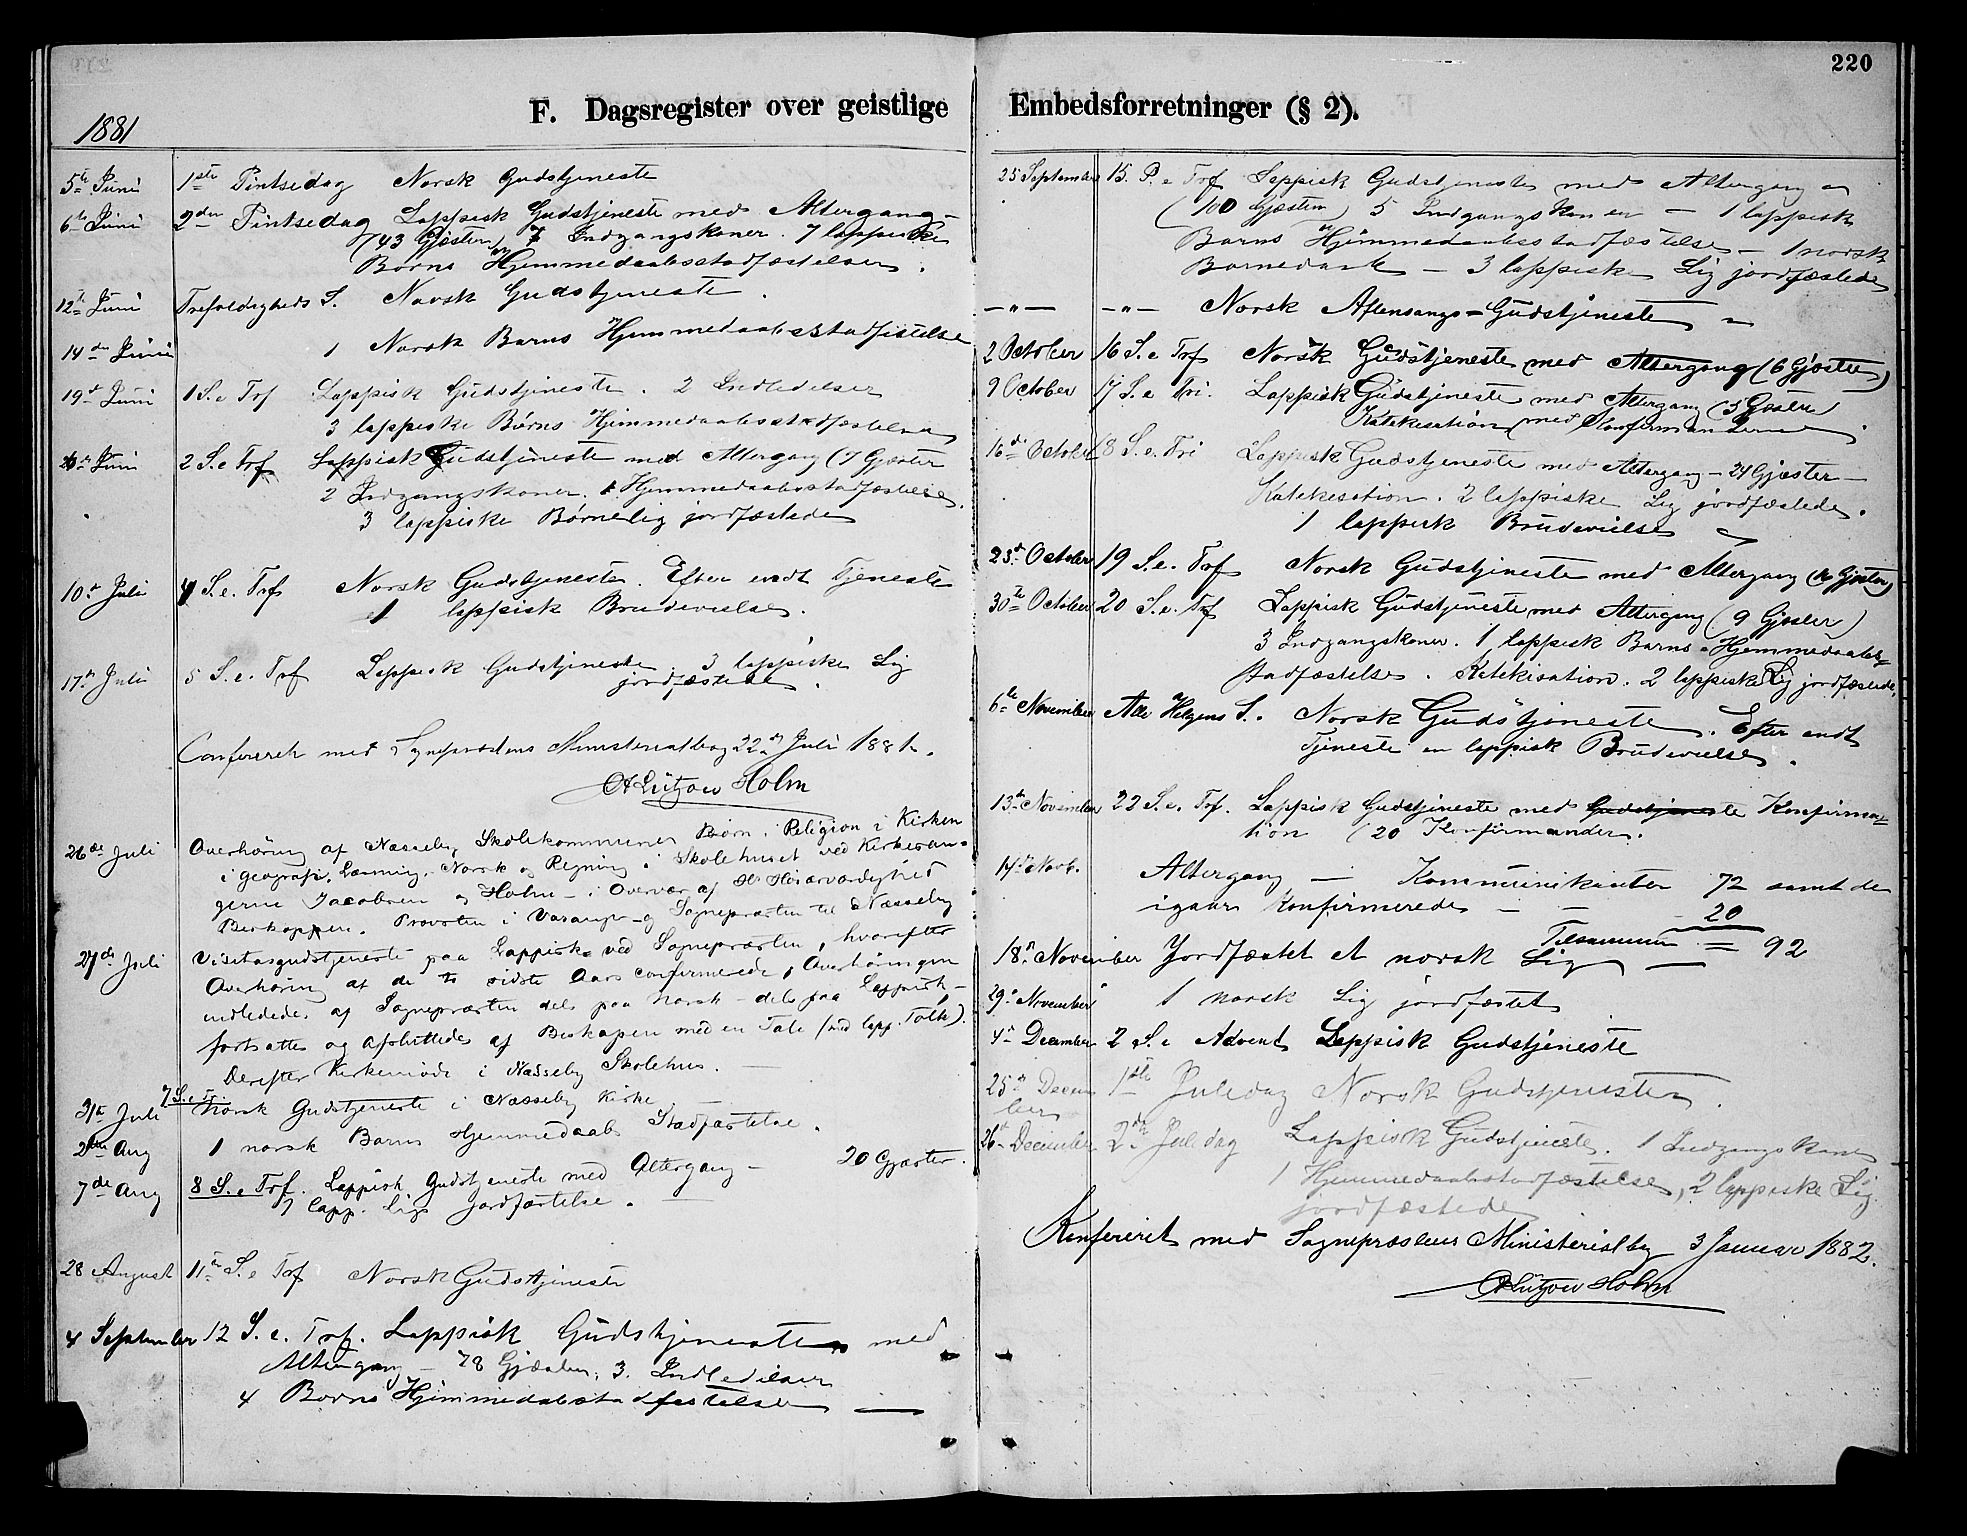 220
F. Dagsregister over geistlige Embedsforretninger (§ 2).
1881
5te Juni 1ste Pintsedag Norsk Gudstjeneste
6te Juni 2den Pintsedag Lappisk Gudstjeneste med Altergang –
(43 Gjæster) 7 Indgangskoner. 7 lappiske
Børns Hjemmedaabsstadfæstelser.
12te Juni Trefoldigheds S. Norsk Gudstjeneste.
14de Juni 1 Norsk Barns Hjemmedaabsstadfæstelse
19de Juni 1 S. e. Trf Lappisk Gudstjeneste. 2 Indledelser
3 lappiske Børns Hjemmedaabsstadfæstelser
26de Juni 2 S. e. Trf Lappisk Gudstjeneste med Altergang (7 Gjæster
2 Indgangskoner. 1 Hjemmedaabsstadfæstelse.
3 lappiske Børnelig jordfæstede
10de Juli 4 S. e. Trf Norsk Gudstjeneste. Efter endt Tjeneste
1 lappisk Brudevielse.
17de Juli 5 S. e. Trf Lappisk Gudstjeneste. 3 lappiske Lig
jordfæstede.
Confereret med Sognepræstens Ministerialbog 22de Juli 1881.
Lützow Holm
26de Juli Overhøring af Næsseby Skolekommunes Børn i Religion i Kirken
i Geografi, Læsning, Norsk og Regning i Skolehuset ved Kirkesan-
gerne Jacobsen og Holm – i Overvær af Hs Høiærværdighed
Biskoppen, Provsten i Varanger og Sognepræsten til Næsseby
27de Juli Visitasgudstjeneste paa Lappisk ved Sognepræsten, hvorefter
Overhøring af de to sidste Aars confirmerede, Overhøringen
indledede af Sognepræsten dels paa Norsk – dels paa Lappisk –
fortsattes og afsluttedes af Biskopen med en Tale (ved lapp. Tolk).
Derefter Kirkemøde i Næsseby Skolehus.
31te Juli 7 S. e. Tr. Norsk Gudstjeneste i Næsseby Kirke
2den Aug 1 norsk Barns Hjemmedaabs Stadfæstelse.
7de Aug 8 S. e. Trf. Lappisk Gudstjeneste med Altergang – 20 Gjæster.
7 lapp. Ligs Jordfæstelse.
28 August 11te S. e Trf Norsk Gudstjeneste
4 September 12 S. e. Trf. Lappisk Gudstjeneste med
Altergang – 78 Gjæster, 3. Indledelser
4 Børns Hjemmedabstadfæstelse
25 September 15. S. e Trf Lappisk Gudstjeneste med Altergang
(100 Gjæster) 5 Indgangskoner – 1 lappisk
Barns Hjemmedaabsstadfæstelse – 1 norsk
Barnedaab – 3 lappiske Lig jordfæstede.
– " – – " – Norsk Aftensangs-Gudstjeneste
2 October 16 S. e Trf Norsk Gudstjeneste med Altergang (6 Gjæster)
9 October 17 S. e Tri. Lappisk Gudstjeneste med Altergang (3 Gjæster)
Katekisation med Konfirmanderne.
16de October 18 S. e. Tri Lappisk Gudstjeneste med Altergang – 24 Gjæster –
Katekesation. 2 lappiske Lig jordfæstede.
1 lappisk Brudevielse
23de October 19 S. e. Trf Norsk Gudstjeneste med Altergang (Gjæster)
30te October 20 S. e. Trf Lappisk Gudstjeneste med Altergang (9 Gjæster)
3 Indgangskoner. 1 lappisk Barns Hjemmedaabs-
stadfæstelse. Katekisation. 2 lappiske Lig jordfæstede.
6te November Alle Helgens S. Norsk Gudstjeneste. Efter endt
Tjeneste en lappisk Brudevielse.
13de November 22 S. e. Trf. Lappisk Gudstjeneste med Gudstjeneste Konfirma-
tion (20 Konfirmander.
14de Novb. Altergang – Kommunikanter 72 samt de
igaar Konfirmerede – – 20
Tilsammen = 92
18de November Jordfæstet et norsk Lig
29de November 1 norsk Lig jordfæstet
4de December 2 S. e Advent Lappisk Gudstjeneste
25de Decem
ber 1ste Juledag Norsk Gudstjeneste.
26de December 2den Juledag Lappisk Gudstjeneste. 1 Indgangskone
1 Hjemmedaabsstadfæstelse, 2 lappiske Lig
jordfæstede
Konfereret med Sognepræstens Ministerialbog 3 Januar 1882.
Lützow Holm